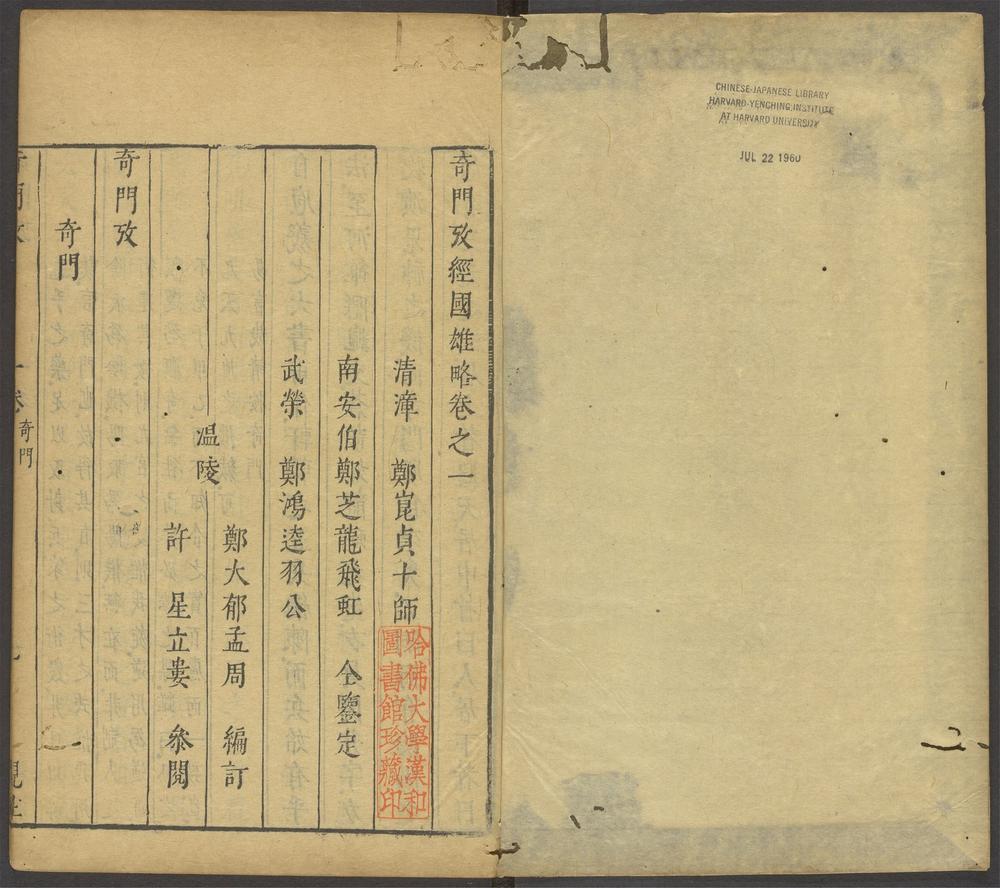 CHINESE-JAPANESE LIBRARY
HARVARD-YENCHING INSTITUTE
AT HARVARD UNIVERSITY
JUL 22 1960
奇門攷經國雄略卷之一
清漳 鄭崑貞十師
南安伯鄭芝龍飛虹 仝鑒定
武榮 鄭鴻逵羽公
溫陵
鄭大郁孟周 編訂
許 星立婁 叅閱
奇門攷
奇門
哈佛大學漢和
圖書館珍藏印
卷
奇門